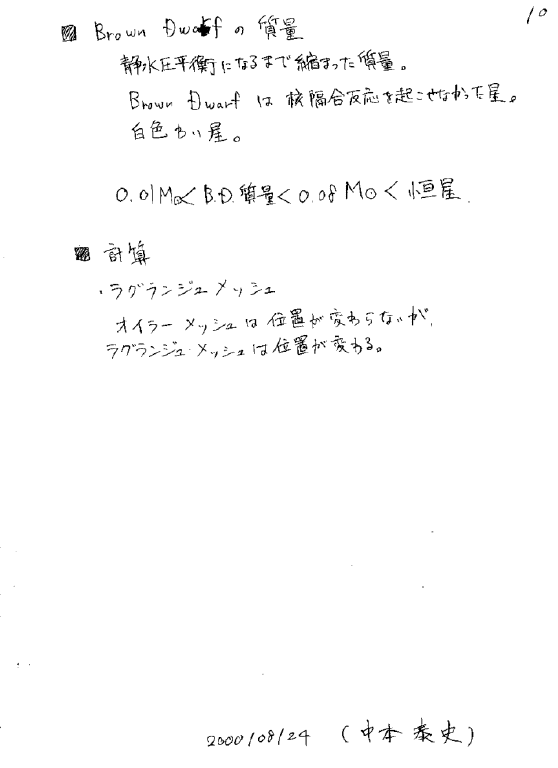 10
■ Brown Dwarf の 質量
静水圧平衡になるまで縮まった質量。
Brown Dwarf は 核融合反応を起こせなかった星。
白色わい星。
0.01M⊙< B.D. 質量 < 0.08 M⊙ < 恒星.
■ 計算
・ラグランジュ メッシュ
オイラー メッシュは 位置が変わらないが,
ラグランジュ・メッシュは位置が変わる。
2000/08/24 (中本 泰史)